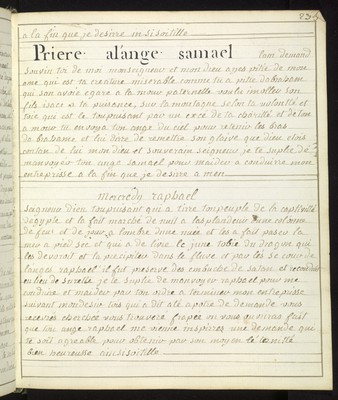 83
a la fin que je desire insisoitille
Priere a lange samael lam demand
souvin toi de moi monseigneur et mon dieu apes pitie de mon
ame qui est ta creatine miserable comme tu a pitie dabraham
qui son avoie egare a la mour paternelle voulu imoller son
fils isaac a ta puisance, sur la montagne selon ta volonté et
toie qui est le toupuisant par un exce de ta charité et de ton
amour tu envoya ton ange du ciel pour retenir les bras
dabraham et lui dire de remettre son glaive que dieu etois
conten de lui mon dieu et souverain seigneur je te suplie de
manvoyer ton ange samael pour maider a conduire mon
entreprisse a la fin que je desire a men
Mercredy raphael
seigneur dieu toupuisant qui a tire ton peuple de la captivité
degypte et la fait marche de nuit a la splandeur dune colonne
de feu et de jour a lombre dune nuee et les a fait passer la
mer a pied sec et qui a de livre le june tobie du dragon qui
les devoroit et la precipiter dans le fleuve et par les se cour de
langes raphael il fut preservé des embuche de satan et reconduit
en lieu de sureté je te suplie de manvoyer raphael pour me
conduire et maider par ton ordre a terminer mon entreprisse
suivant mon desir lors qui a dit ale apotre de demande vous
receverés cherchez vous trouverez frapée on vous ouvrira fait
que ton ange raphael me vienne inspirer une demande qui
te soit agreable pour obtenir par son moyen le
bien heureusse ainsisoitille